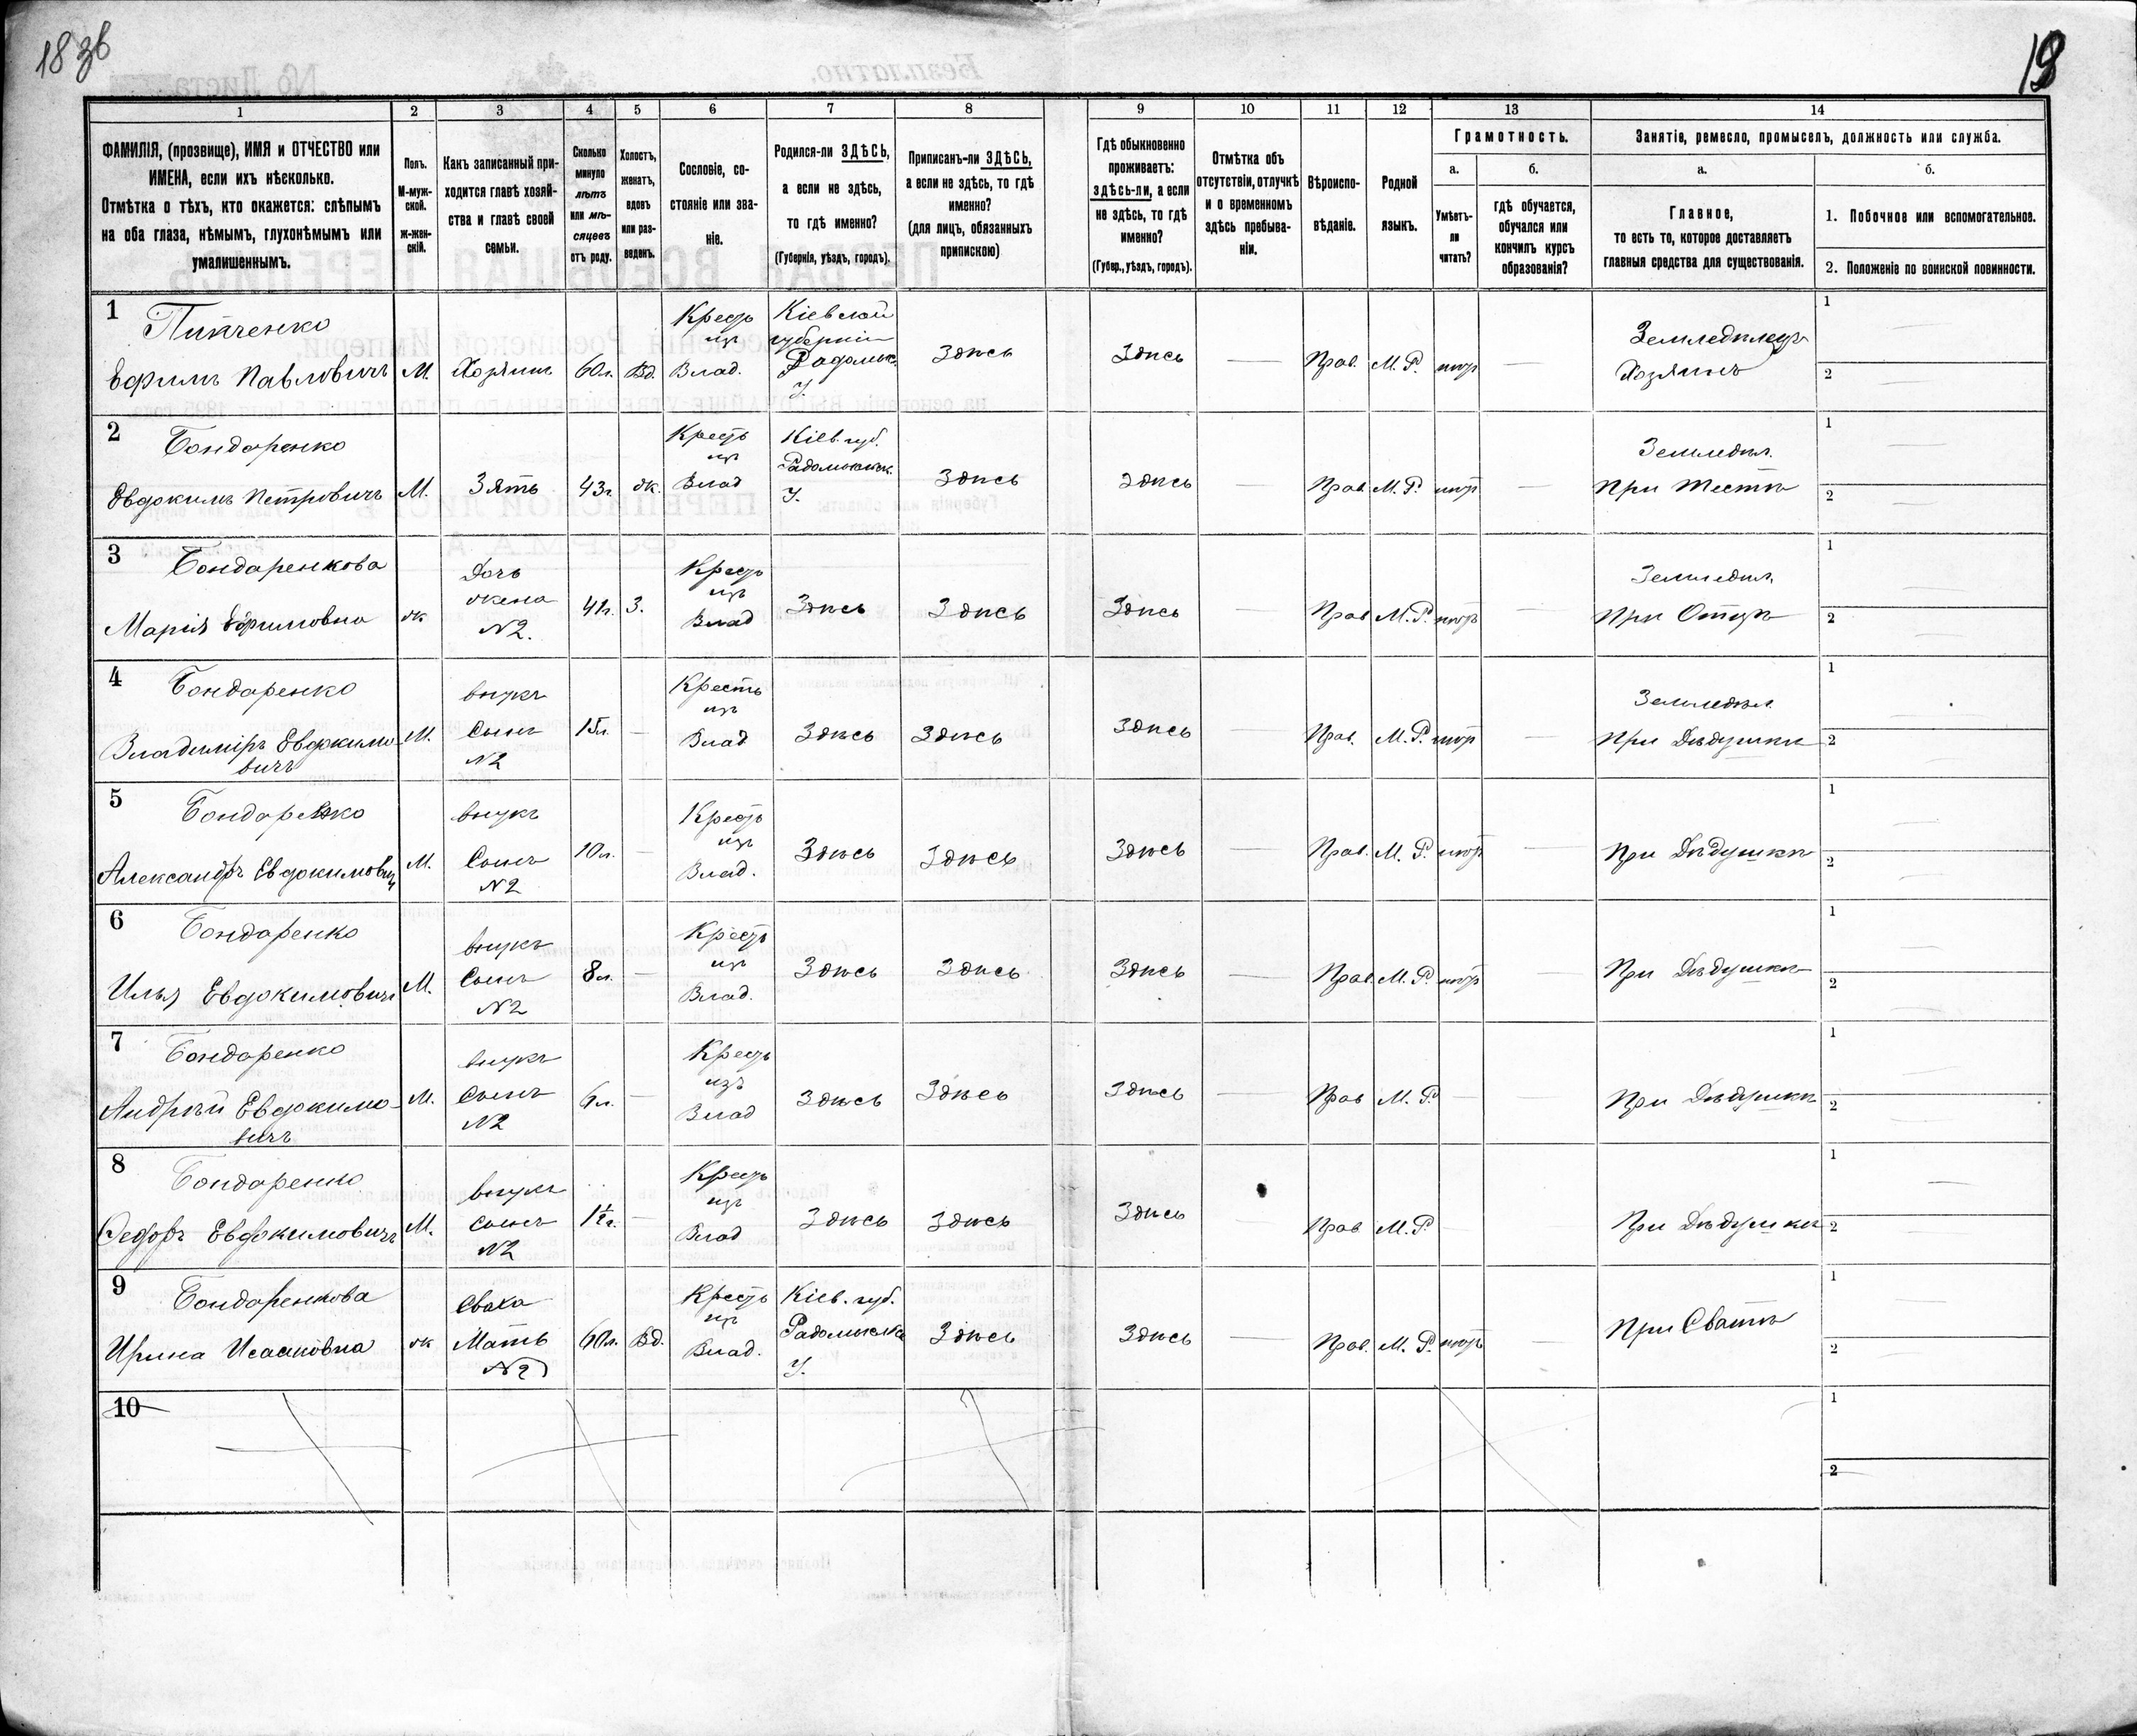 18 зв
19
1 2 3 4 5 6 7 8 9 10 11 12 13 14
ФАМИЛІЯ, (прозвище), ИМЯ и ОТЧЕСТВО или
ИМЕНА, если ихъ нѣсколько.
Отмѣтка о тѣхъ, кто окажется: слѣпымъ
на оба глаза, нѣмымъ, глухонѣмымъ или
умалишеннымъ.
Полъ.
М-муж-
ской.
ж-жен-
скій.
Какъ записанный при-
ходится главѣ хозяй-
ства и главѣ своей
семьи.
Сколько
минуло
лѣтъ
или мѣ-
сяцевъ
отъ роду.
Холостъ,
женатъ,
вдовъ
или раз-
веденъ.
Сословіе, со-
стояніе или зва-
ніе.
Родился-ли ЗДѢСЬ,
а если не здѣсь,
то гдѣ именно?
(Губернія, уѣздъ, городъ).
Приписанъ-ли ЗДѢСЬ,
а если не здѣсь, то гдѣ
именно?
(для лицъ, обязанныхъ
припискою)
Гдѣ обыкновенно
проживаетъ:
здѣсь-ли, а если
не здѣсь, то гдѣ
именно?
(Губер., уѣздъ, городъ).
Отмѣтка объ
отсутствіи, отлучкѣ
и о временномъ
здѣсь пребыва-
ніи.
Вѣроиспо-
вѣданіе.
Родной
языкъ.
Грамотность.
а.
Умѣетъ-
ли
читать?
б.
гдѣ обучается,
обучался или
кончилъ курсъ
образованія?
Занятіе, ремесло, промыселъ, должность или служба.
а.
Главное,
то есть то, которое доставляетъ
главныя средства для существованія.
б.
1. Побочное или вспомогательное.
2. Положеніе по воинской повинности.
1
Ефимъ Павловичъ
М.
Хозяинъ
60 л.
Вд.
Кресть
изъ
Влад.
Кіевской
губерніи
У.
Здѣсь
Здѣсь
Прав.
М. Р.
нѣтъ
Земледѣлецъ
Хозяинъ
1
2
2
Бондаренко
Евдокимъ Петровичъ
М.
Зять
43 г.
ж.
Кресть
изъ
Влад
Кіев. губ.
У.
Здѣсь
Здѣсь
Прав
М. Р.
нѣтъ
Земледѣл.
При Тестѣ
1
2
3
Бондаренкова
Марія Ефимовна
ж
Дочь
жена
№2.
41 г.
З.
Кресть
изъ
Влад
Здѣсь
Здѣсь
Здѣсь
Прав
М. Р.
нѣтъ
Земледѣл.
При Отцѣ
1
2
4
Бондаренко
Владиміръ Евдокимо-
вичъ
М.
внукъ
Сынъ
№2
15 л.
Кресть
изъ
Влад
Здѣсь
Здѣсь
Здѣсь
Прав.
М. Р.
нѣтъ
Земледѣл.
При Дѣдушкѣ
1
2
5
Бондаренко
Александръ Евдокимович
М.
внукъ
Сынъ
№2
10 л.
Кресть
изъ
Влад.
Здѣсь
Здѣсь
Здѣсь
Прав.
М. Р.
нѣтъ
При Дѣдушкѣ
1
2
6
Бондаренко
Илья Евдокимовичъ
М.
внукъ
Сынъ
№2
8 л.
Кресть
изъ
Влад.
Здѣсь
Здѣсь
Здѣсь
Прав.
М. Р.
нѣтъ
При Дѣдушкѣ
1
2
7
Бондаренко
Андрѣй Евдокимо-
вичъ
М.
внукъ
Сынъ
№2
6 л.
Кресть
изъ
Влад
Здѣсь
Здѣсь
Здѣсь
Прав
М. Р.
При Дѣдушкѣ
1
2
8
Бондаренко
Федоръ Евдокимовичъ
М.
внукъ
сынъ
№2
1½ г.
Кресть
изъ
Влад
Здѣсь
Здѣсь
Здѣсь
Прав
М. Р.
При Дѣдушкѣ
1
2
9
Бондаренкова
Ирина Исааковна
ж
Сваха
Мать
№2
60 л.
Вд.
Кресть
изъ
Влад.
Кіев. губ.
У.
Здѣсь
Здѣсь
Прав.
М. Р.
нѣтъ
При Сватѣ
1
2
10
1
2